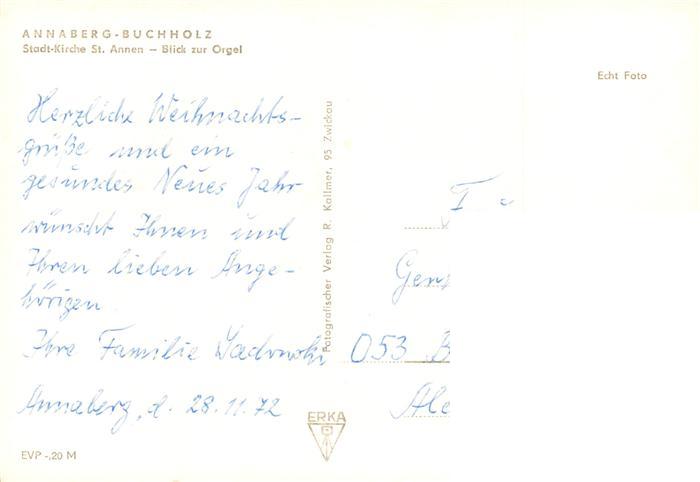 ANNABERG-BUCHHOLZ
Stadt-Kirche St. Annen – Blick zur Orgel
Echt Foto
Herzliche Weihnachts-
grüße und ein
gesundes Neues Jahr
wünscht Ihnen und
Ihren lieben Ange-
hörigen
Ihre Familie
Annaberg, d. 28.11.72
Fotografischer Verlag R. Kallmer, 95 Zwickau
053 B
Ale
ERKA
EVP -,20 M